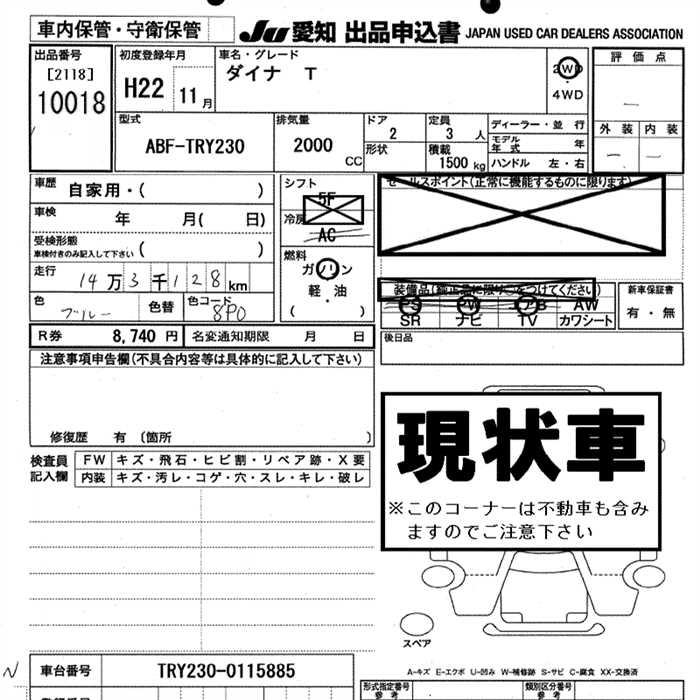 車内保管・守衛保管
JU 愛知 出品申込書 JAPAN USED CAR DEALERS ASSOCIATION
出品番号
[2118]
10018
初度登録年月
H22 11月
車名・グレード
ダイナ T
2WD
・
4WD
評価点
—
外装 内装
— —
型式
ABF-TRY230
排気量
2000 CC
ドア
2
定員
3 人
形状
積載
1500 kg
ディーラー・並行
モデル年式 年
ハンドル 左・右
車歴 自家用・( )
車検 年 月( 日)
受検形態
車検付きのみ記入して下さい ( )
走行 14万3千128km
色 ブルー 色替 色コード 8P0
シフト
5F
冷房
AC
燃料
ガソリン
・
軽・油
( )
セールスポイント(正常に機能するものに限ります)
装備品(純正品に限り○をつけてください)
PS PW AB AW
SR ナビ TV カワシート
新車保証書
有・無
R券 8,740 円 名変通知期限 月 日
後日品
注意事項申告欄(不具合内容等は具体的に記入して下さい)
修復歴 有 〔箇所 〕
現状車
※このコーナーは不動車も含み
ますのでご注意下さい
検査員
記入欄
FW キズ・飛石・ヒビ割・リペア跡・X要
内装 キズ・汚レ・コゲ・穴・スレ・キレ・破レ
スペア
N
車台番号 TRY230-0115885
A-キズ E-エクボ U-凹み W-補修跡 S-サビ C-腐食 XX-交換済
形式指定番号
参考
類別区分番号
参考